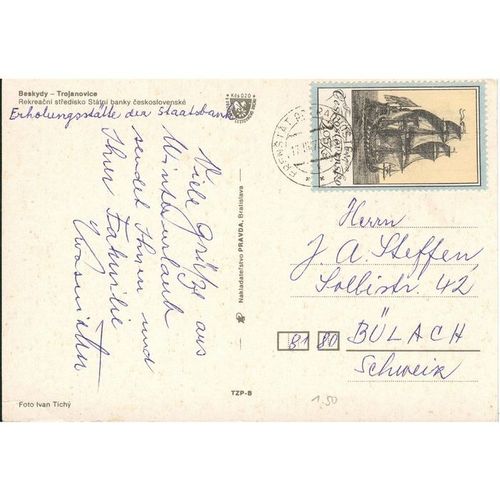 Beskydy – Trojanovice
Rekreační středisko Státní banky československé
Erholungsstätte der Staatsbank
Viele Grüße aus
Winterurlaub
sendet Ihnen und
Ihrer Familie
Nakladatelství PRAVDA, Bratislava
TZP-B
Foto Ivan Tichý
Československo
Herrn
J A. Steffen,
Sollistr. 42
81 80 BÜLACH
Schweiz
1.50